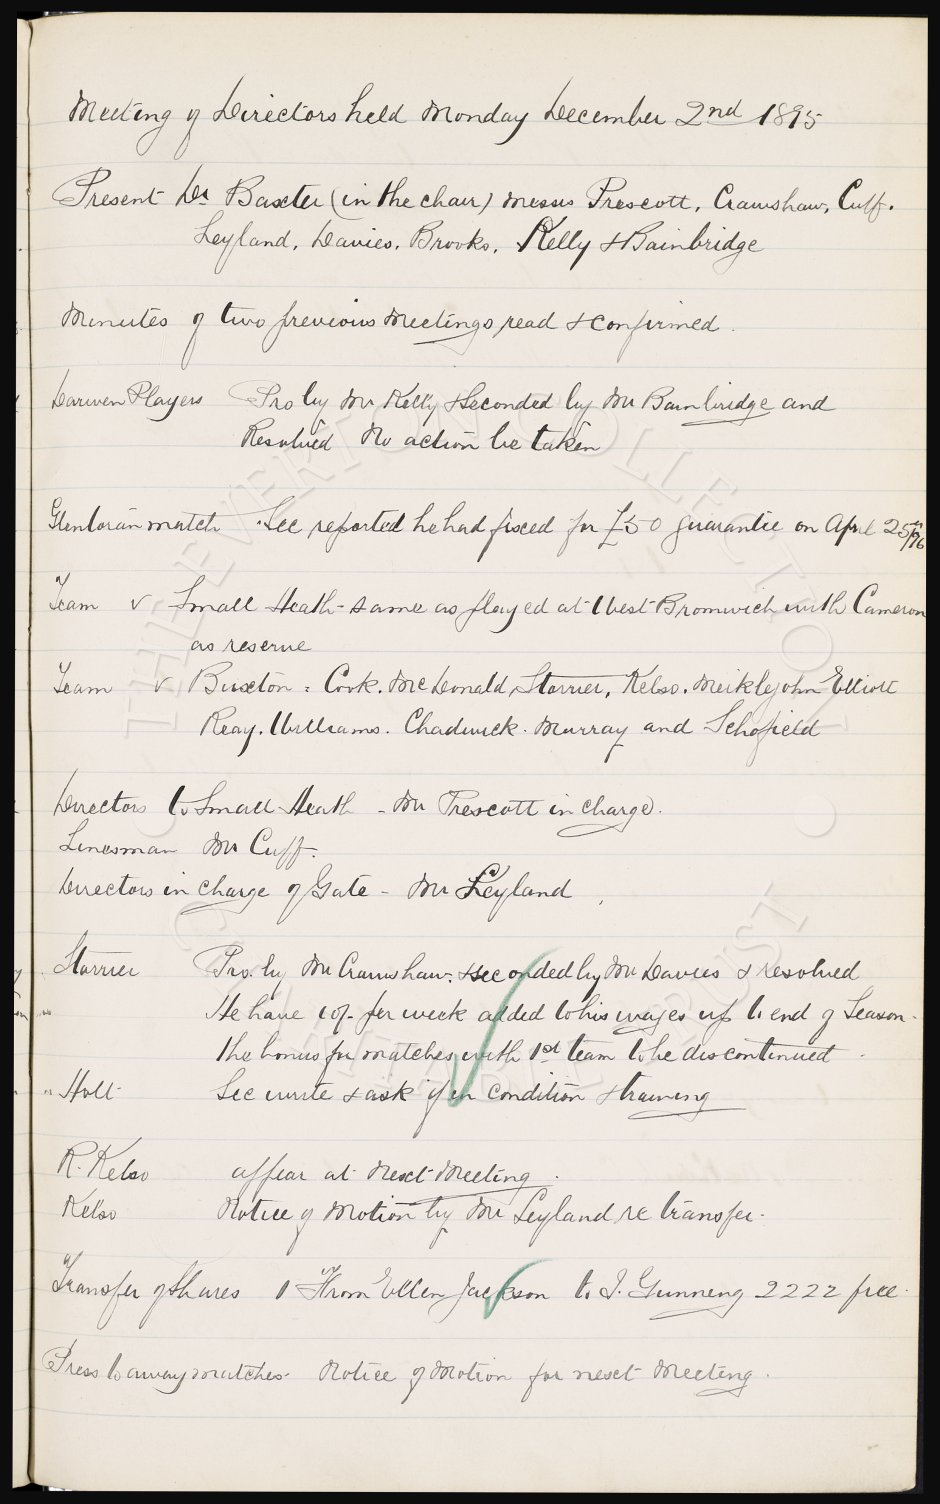 Meeting of Directors held Monday December 2nd 1895
Present Dr Baxter (in the chair) Messrs Prescott, Cramshaw, Cuff.
Leyland, Davies, Brooks, Kelly & Bainbridge
Minutes of two previous Meetings read & confirmed.
Darwen Players Pro by Mr Kelly & Seconded by Mr Bainbridge and
Resolved No action be taken
Glentoran match Sec reported he had fixed for £50 guarantee on April 25th/96
Team v Small Heath - same as played at West Bromwich with Cameron
as reserve
Team v Buxton = Cook, McDonald, Storrier, Kelso, Meiklejohn Elliott
Reay, Williams, Chadwick, Murray and Schofield
Directors to Small Heath - Mr Prescott in charge.
Linesman Mr Cuff.
Directors in charge of Gate - Mr Leyland
Storrier Pro. by Mr Cramshaw. & seconded by Mr Davies & resolved
He have 10/- per week added to his wages up to end of Season.
The bonus for matches with 1st team to be discontinued.
Holt Sec write & ask if in condition & training
R. Kelso appear at Next Meeting.
Kelso Notice of Motion by Mr Leyland re transfer.
Transfer of Shares 1 From Ellen Jackson to I. Gunning 2222 free.
Press to away matches. Notice of Motion for next Meeting.
THE EVERTON COLLECTION
CHARITABLE TRUST